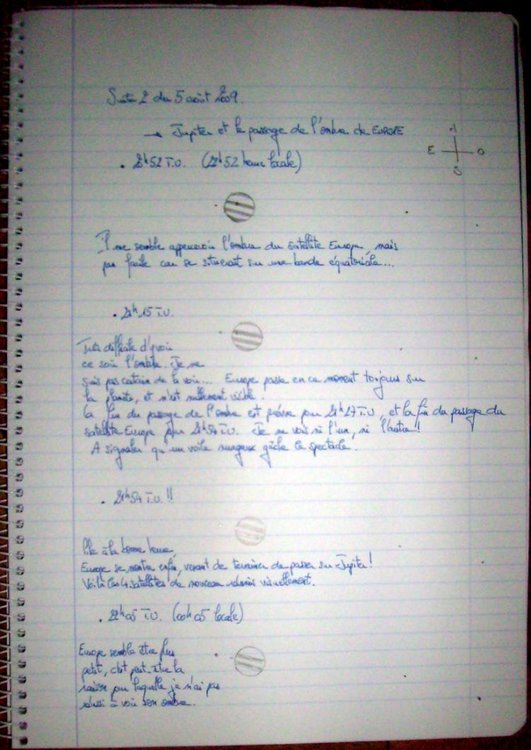 Suite 2 du 5 août 2009
→ Jupiter et le passage de l'ombre de EUROPE
N
E O
S
• 20h52 T.U. (22h52 heure locale)
Il me semble apercevoir l'ombre du satellite Europe, mais
pas facile car se situerait sur une bande équatoriale...
• 21h15 T.U.
Très difficile d'y voir
ce soir l'ombre. Je ne
suis pas certain de la voir... Europe passe en ce moment toujours sur
la planète, et n'est nullement visible.
la fin du passage de l'ombre est prévue pour 21h27 T.U, et la fin du passage du
satellite Europe pour 21h54 T.U. Je ne vois ni l'un, ni l'autre!
A signaler qu'un voile nuageux gâche le spectacle.
• 21h54 T.U.!!
Pile à la bonne heure,
Europe se montre enfin, venant de terminer de passer sur Jupiter!
Voilà les 4 satellites de nouveau réunis visuellement.
• 22h05 T.U. (00h05 locale)
Europe semble être plus
petit, c'est peut-être la
raison pour laquelle je n'ai pas
réussi à voir son ombre.